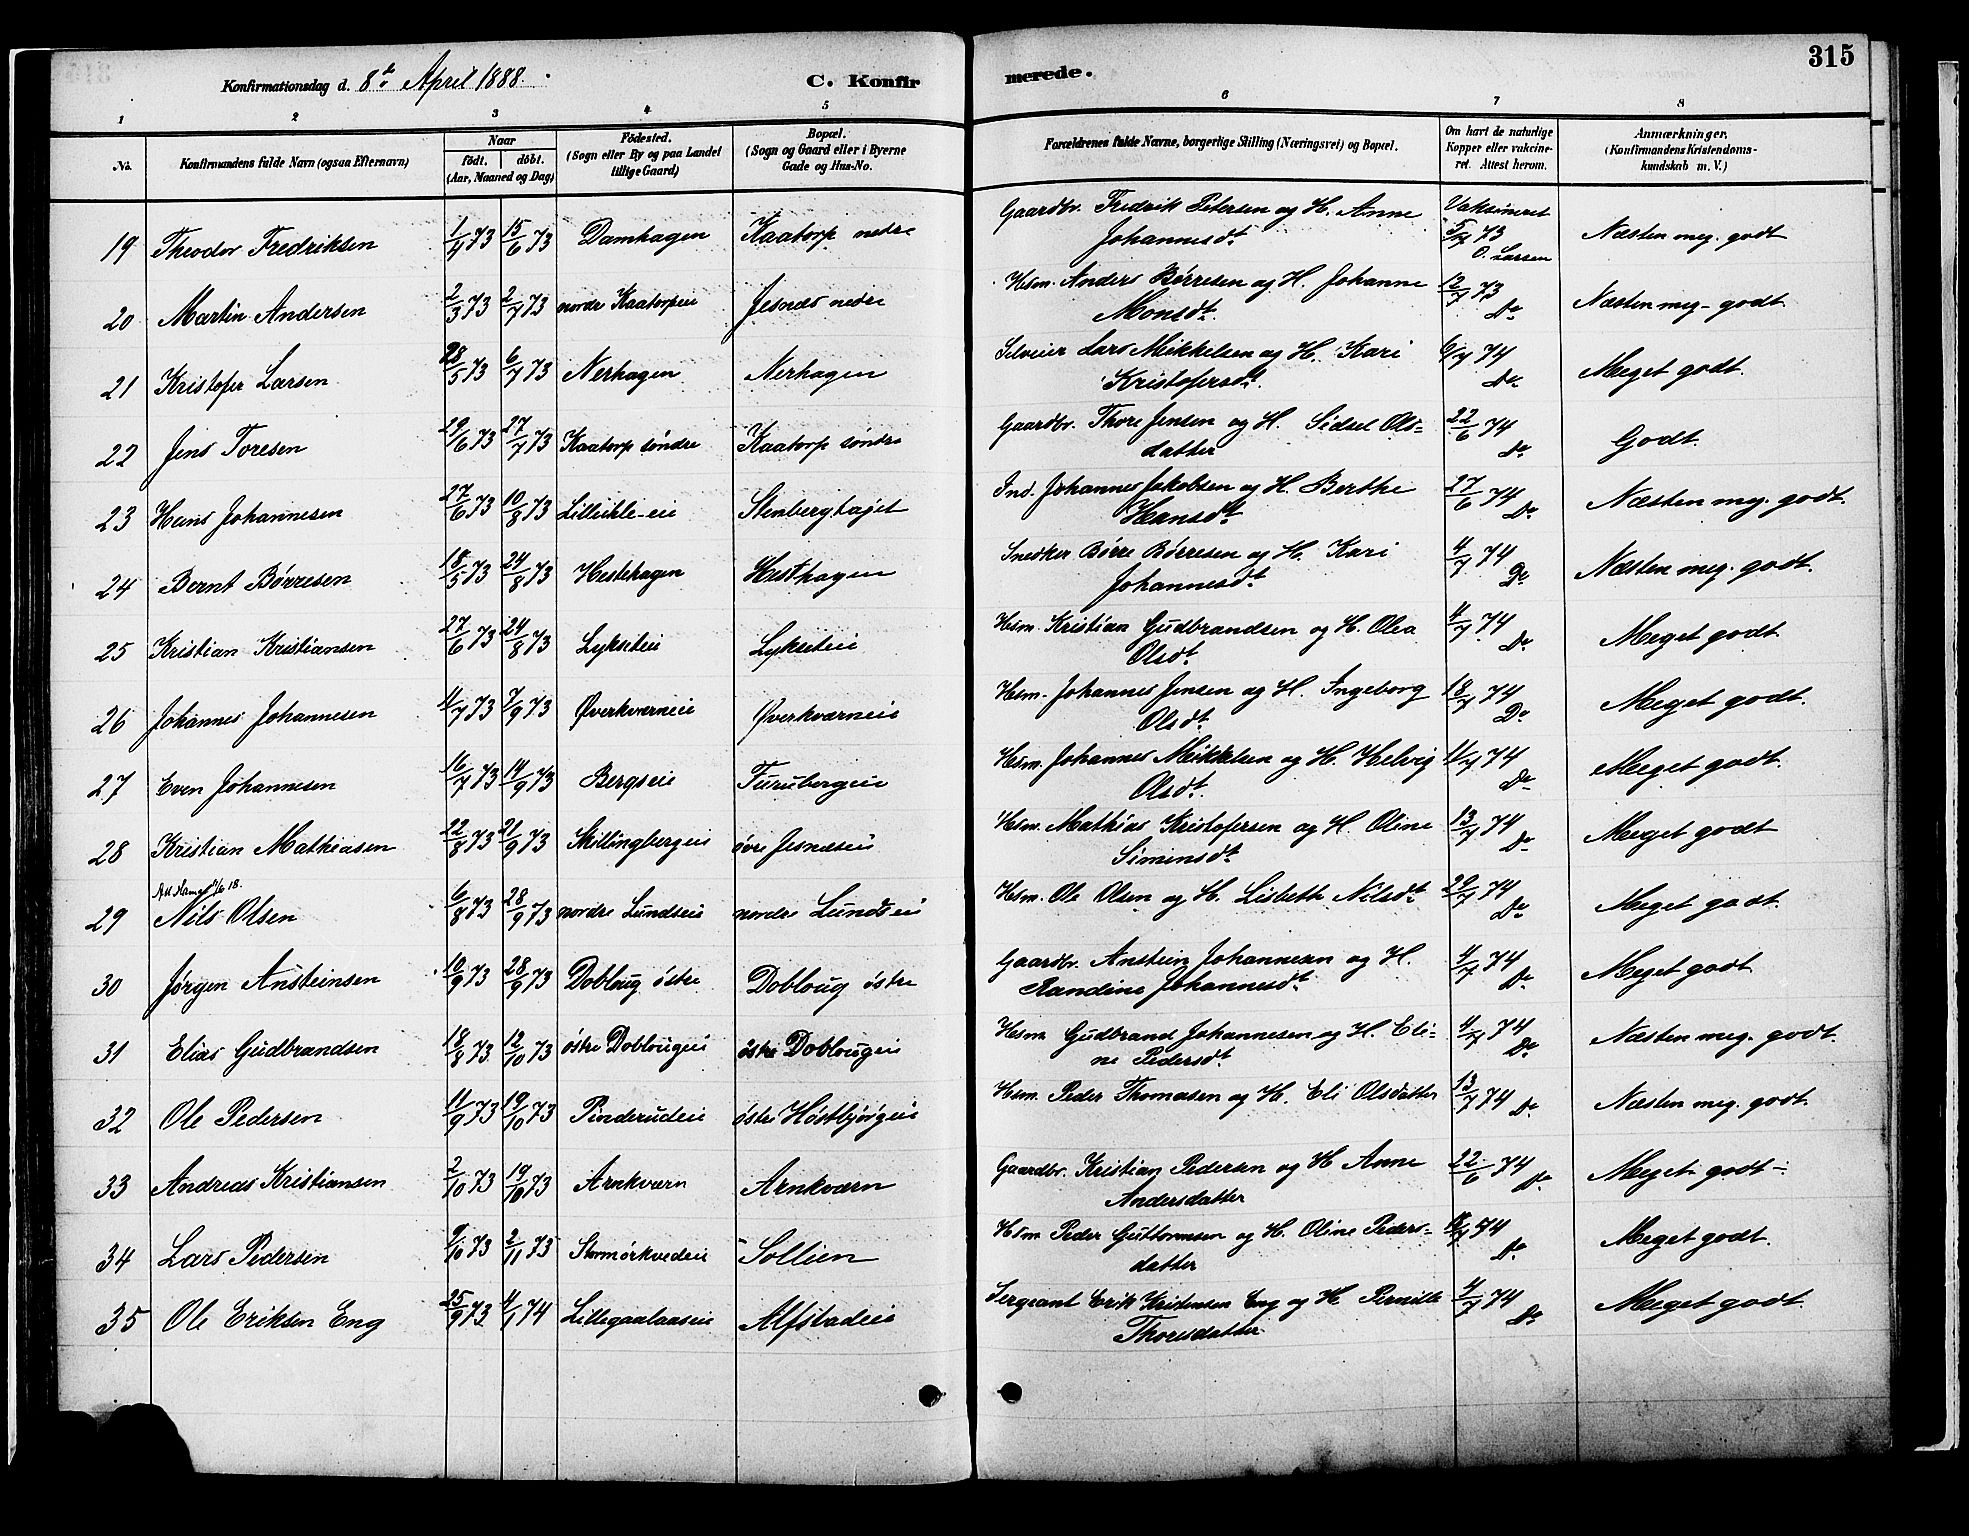 315
Konfirmationsdag d. 8de April 1888. C. Konfirmerede.
1 2 3 4 5 6 7 8
No. Konfirmandens fulde Navn (ogsaa Efternavn) Naar födt. döbt. (Aar, Maaned og Dag) Födested. (Sogn eller By og paa Landet tillige Gaard) Bopæl. (Sogn og Gaard eller i Byerne Gade og Hus-No. Forældrenes fulde Navne, borgerlige Stilling (Næringsvei) og Bopæl. Om havt de naturlige Kopper eller vakcineret. Attest herom. Anmærkninger, (Konfirmandens Kristendomskundskab m. V.)
19 Theodor Fredriksen 1/4 73 15/6 73 Damhagen Kaatorp nedre Gaardbr. Fredrik Petersen og H. Anne Johannesdt. Vaksineret 5/7 73 O. Larsen Næsten meg. godt
20 Martin Andersen 2/3 73 2/7 73 nordre Kaatorpeie Jesnæs nedre Hsm. Anders Børresen og H. Johanne Monsdt. 12/7 73 Do Næsten meg. godt
21 Kristofer Larsen 28/5 73 6/7 73 Nerhagen Nerhagen Selveier Lars Mikkelsen og H. Kari Kristofersdt. 6/7 74 Do Meget godt.
22 Jens Toresen 29/6 73 27/7 73 Kaatorp søndre Kaatorp søndre Gaardbr. Thore Jensen og H. Sidsel Olsdatter 22/6 74 Do Godt.
23 Hans Johannesen 27/6 73 10/8 73 Lilleikle-eie Stenbergtajet Ind. Johannes Jakobsen og H. Berthe Hansdt 27/6 74 Do Næsten meg. godt.
24 Bernt Børresen 18/5 73 24/8 73 Hestehagen Hesthagen Snedker Børre Børresen og H. Kari Johannesdt 4/7 74 Do Næsten meg. godt.
25 Kristian Kristiansen 27/6 73 24/8 73 Lykseteie Lykseteie Hsm. Kristian Gudbrandsen og H. Olea Olsdt. 4/7 74 Do Meget godt
26 Johannes Johannesen 11/7 73 7/9 73 Øverkværneie Øverkværneie Hsm. Johannes Jensen og H. Ingeborg Olsdt. 18/7 74 Do Meget godt.
27 Even Johannesen 16/7 73 14/9 73 Bergseie Furubergeie Hsm. Johannes Mikkelsen og H. Helvig Olsdt. 11/7 74 Do Meget godt.
28 Kristian Mathiasen 22/8 73 21/9 73 Skillingbergeie øvre Jesnæseie Hsm. Mathias Kristofersen og H. Oline Simensdt 13/7 74 Do Meget godt
29 Nils Olsen 6/8 73 28/9 73 nordre Lundseie nordre Lundseie Hsm. Ole Olsen og H. Lisbeth Nilsdt 29/7 74 Do Meget godt.
30 Jørgen Ansteinsen 10/9 73 28/9 73 Dobloug østre Dobloug østre Gaardbr. Anstein Johannesen og H. Randine Johannesdt. 4/7 74 Do Meget godt
31 Elias Gudbrandsen 18/8 73 12/10 73 østre Doblougeie østre Doblougeie Hsm. Gudbrand Johannesen og H. Eline Pedersdt. 4/7 74 Do Næsten meg. godt.
32 Ole Pedersen 11/9 73 19/10 73 Pinderudeie østre Høstbjørgeie Hsm. Peder Thomasen og H. Eli Olsdatter 13/7 74 Do Næsten meg. godt.
33 Andreas Kristiansen 2/10 73 19/10 73 Arnkværn Arnkværn Gaardbr. Kristian Pedersen og H Anne Andersdatter 22/6 74 Do Meget godt
34 Lars Pedersen 9/10 73 2/11 73 Sollien Hsm Peder Guttormsen og H. Oline Pedersdatter 74 Do Meget godt.
35 Ole Eriksen Eng 25/9 73 4/1 74 Lillegaalaaseie Alfstadeie Sergeant Erik Kristensen Eng og H Pernille Thoresdatter 4/7 74 Do Meget godt.